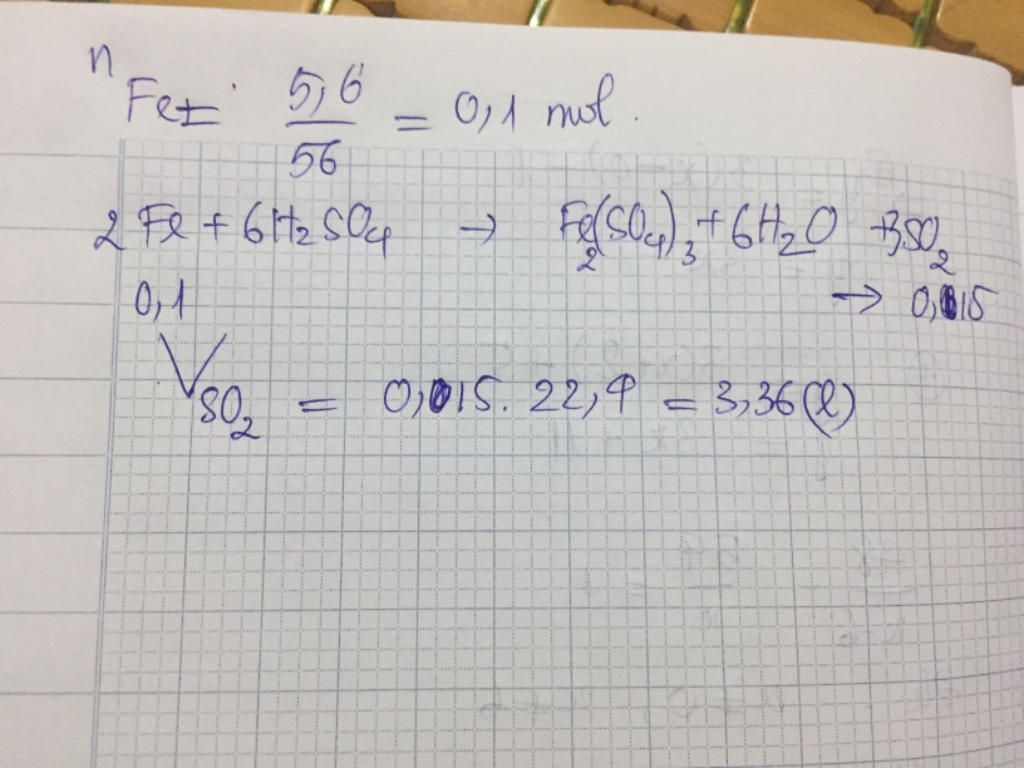 n Fe = 5,6 / 56 = 0,1 mol.
2 Fe + 6H2SO4 → Fe2(SO4)3 + 6H2O + 3SO2
0,1 → 0,15
VSO2 = 0,15 . 22,4 = 3,36 (l)